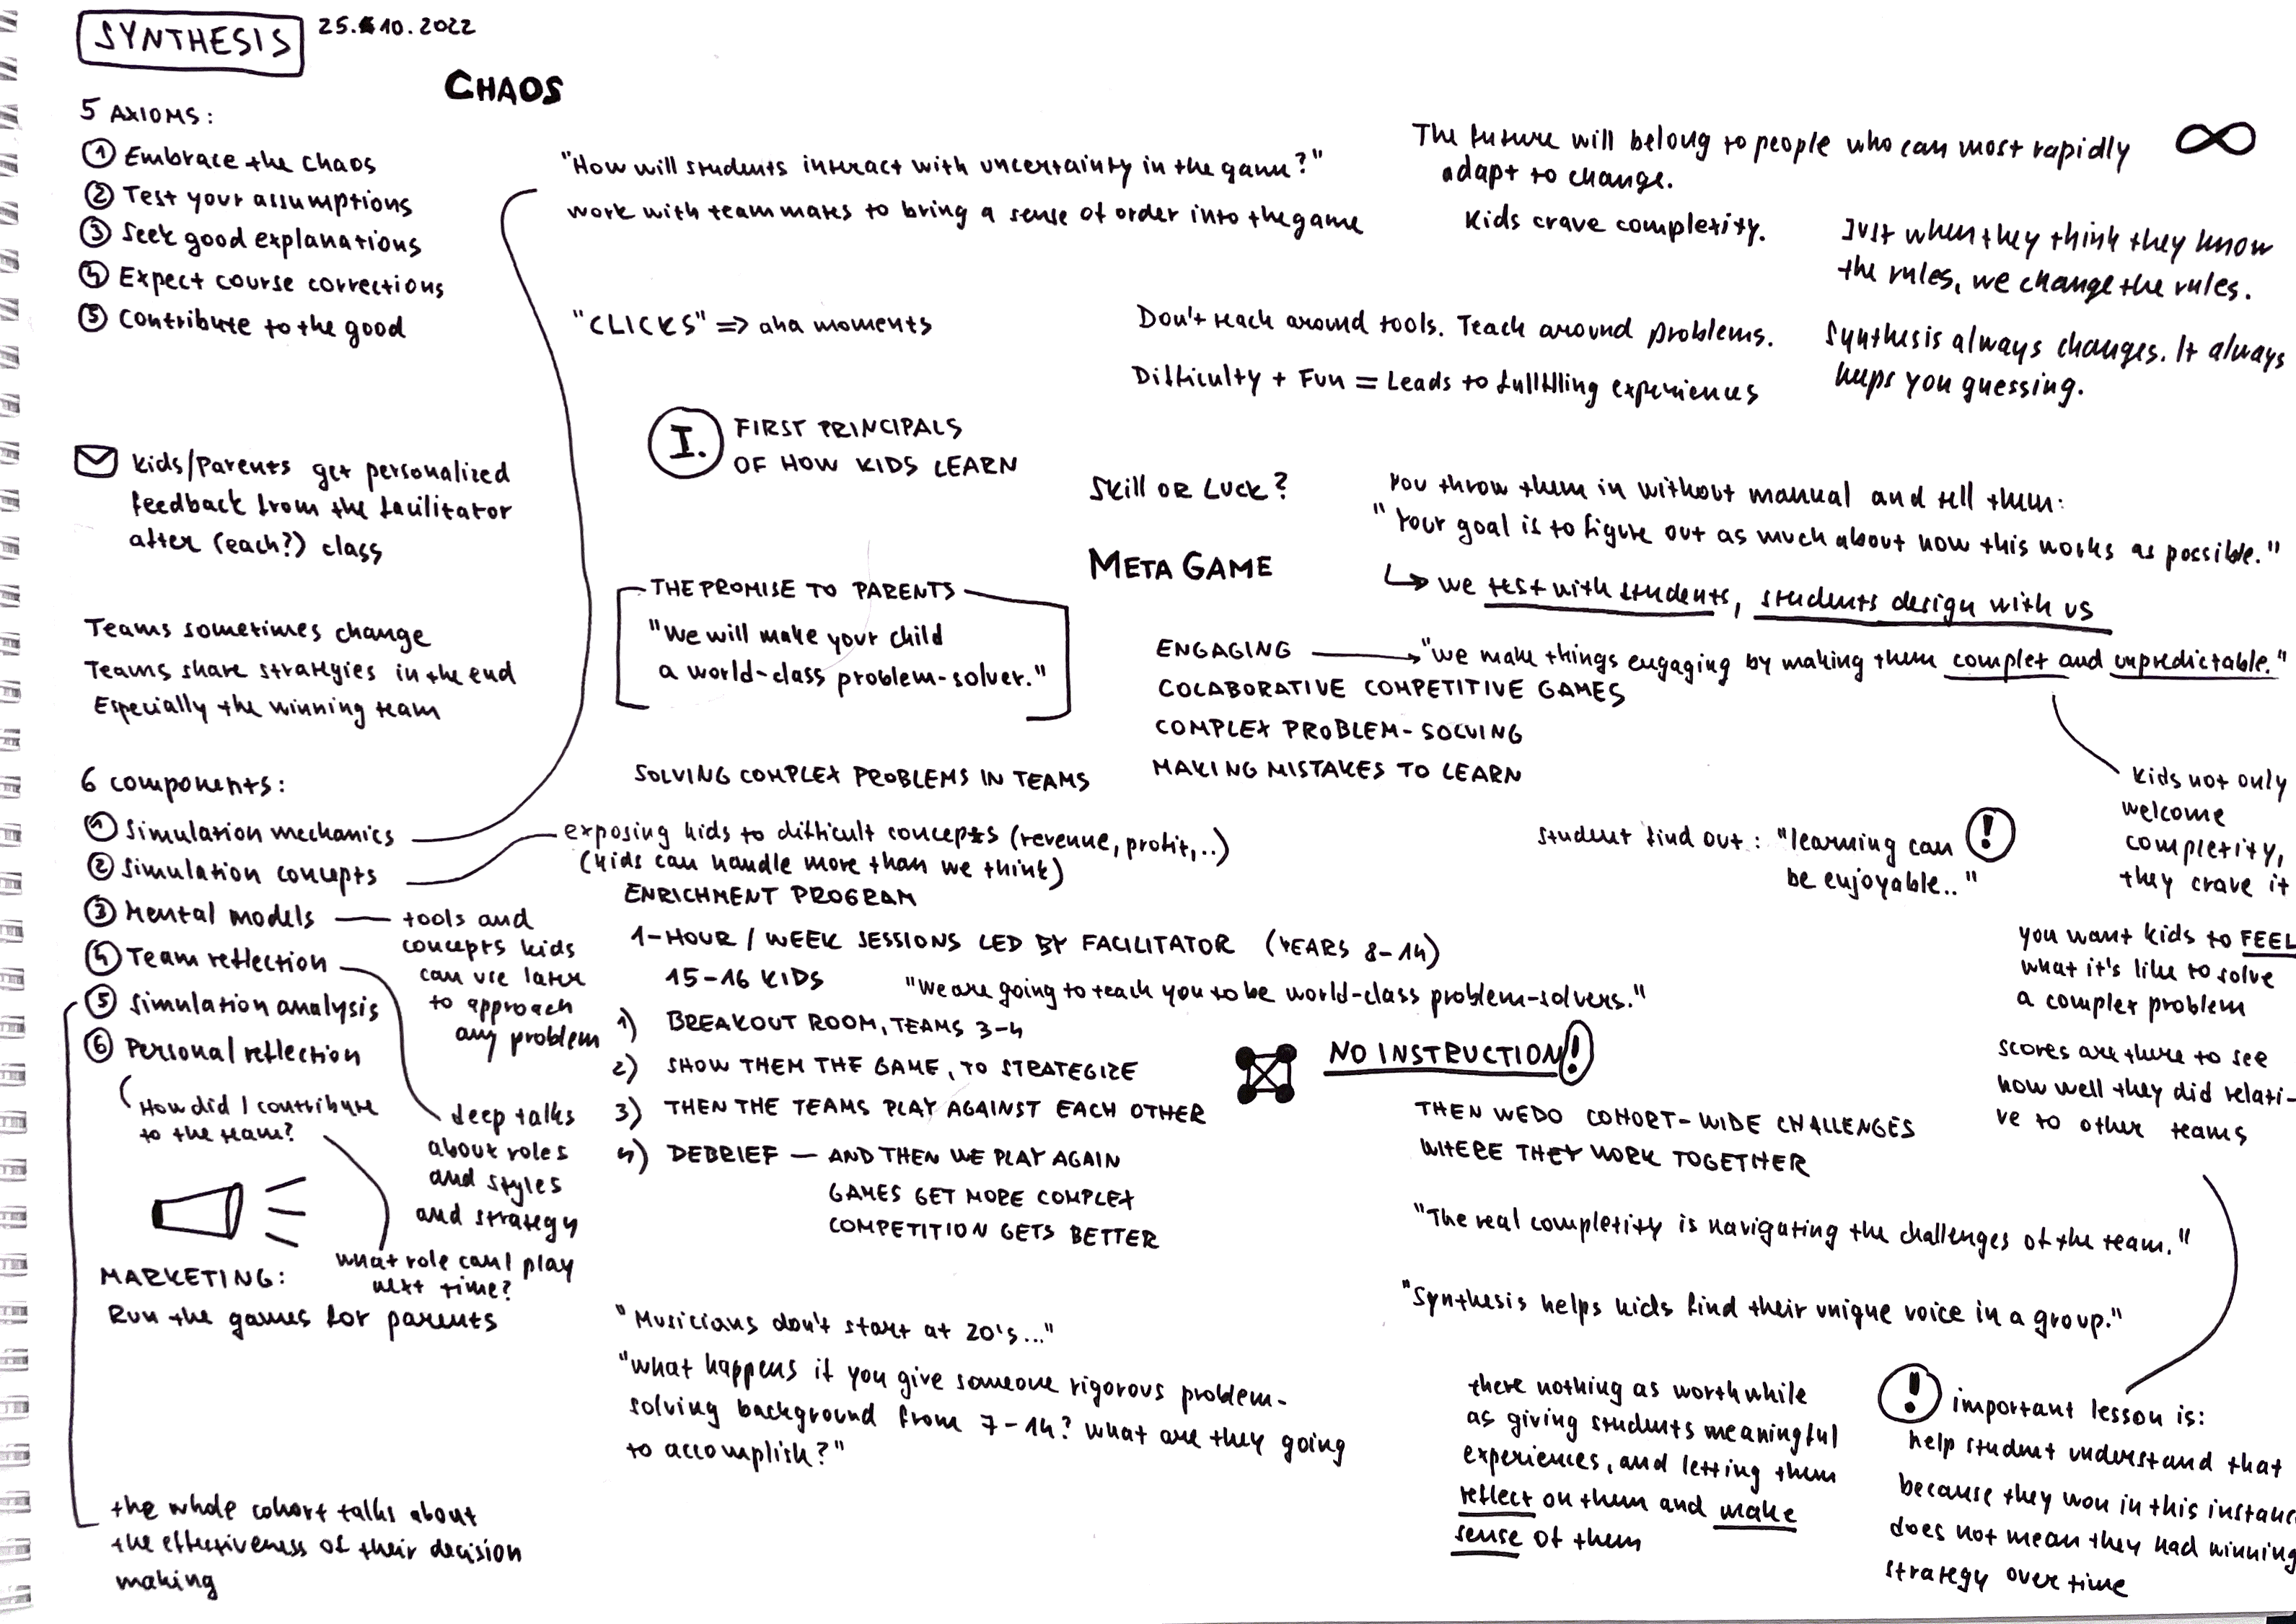 SYNTHESIS
25.10.2022
CHAOS
5 AXIOMS:
① Embrace the chaos
② Test your assumptions
③ Seek good explanations
④ Expect course corrections
⑤ Contribute to the good
"How will students interact with uncertainty in the game?"
work with teammates to bring a sense of order into the game
"CLICKS" => aha moments
The future will belong to people who can most rapidly
adapt to change.
∞
Kids crave complexity.
Just when they think they know
the rules, we change the rules.
Don't teach around tools. Teach around problems.
Difficulty + Fun = Leads to fullfilling experiences
Synthesis always changes. It always
keeps you guessing.
I. FIRST PRINCIPALS
OF HOW KIDS LEARN
Kids/Parents get personalized
feedback from the facilitator
after (each?) class
Skill or Luck?
You throw them in without manual and tell them:
"Your goal is to figure out as much about how this works as possible."
↳ we test with students, students design with us
META GAME
THE PROMISE TO PARENTS
"We will make your child
a world-class problem-solver."
Teams sometimes change
Teams share strategies in the end
Especially the winning team
ENGAGING → "we make things engaging by making them complex and unpredictable."
COLABORATIVE COMPETITIVE GAMES
COMPLEX PROBLEM-SOLVING
MAKING MISTAKES TO LEARN
SOLVING COMPLEX PROBLEMS IN TEAMS
Kids not only
welcome
complexity,
they crave it
student find out: "learning can
be enjoyable.." !
6 components:
① Simulation mechanics
② Simulation concepts
③ Mental models
④ Team reflection
⑤ Simulation analysis
⑥ Personal reflection
exposing kids to difficult concepts (revenue, profit,..)
(kids can handle more than we think)
tools and
concepts kids
can use later
to approach
any problem
How did I contribute
to the team?
deep talks
about roles
and styles
and strategy
what role can I play
next time?
ENRICHMENT PROGRAM
1-HOUR / WEEK SESSIONS LED BY FACILITATOR (YEARS 8-14)
15-16 KIDS
"We are going to teach you to be world-class problem-solvers."
1) BREAKOUT ROOM, TEAMS 3-4
2) SHOW THEM THE GAME, TO STRATEGIZE
3) THEN THE TEAMS PLAY AGAINST EACH OTHER
4) DEBRIEF — AND THEN WE PLAY AGAIN
GAMES GET MORE COMPLEX
COMPETITION GETS BETTER
NO INSTRUCTION!
THEN WE DO COHORT-WIDE CHALLENGES
WHERE THEY WORK TOGETHER
you want kids to FEEL
what it's like to solve
a complex problem
scores are there to see
how well they did relati-
ve to other teams
"The real complexity is navigating the challenges of the team."
"Synthesis helps kids find their unique voice in a group."
MARKETING:
Run the games for parents
"Musicians don't start at 20's..."
"What happens if you give someone rigorous problem-
solving background from 7-14? What are they going
to accomplish?"
there nothing as worthwhile
as giving students meaningful
experiences, and letting them
reflect on them and make
sense of them
! important lesson is:
help student understand that
because they won in this instanc
does not mean they had winning
strategy over time
the whole cohort talks about
the effectiveness of their decision
making